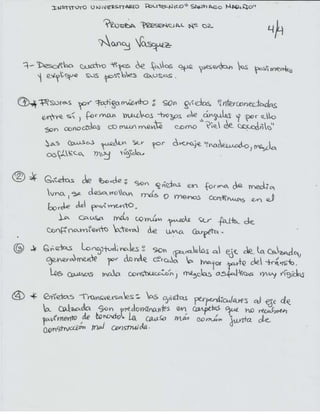 INSTITUTO UNIVERSITARIO POLITECNICO "SANTIAGO MARIÑO"
PRUEBA PRESENCIAL Nº 02
4/4
Nancy Vasquez
7- Describa cuatro tipos de fallas que presentan los pavimentos
y explique sus posibles causas.
① * Fisuras por Fatigamiento: son grietas interconectadas
entre sí, forman muchos trozos de ángulos y por ello
son conocidas comunmente como "Piel de cocodrilo"
Las causas pueden ser por drenaje inadecuado, mezcla
asfáltica muy rígida.
② * Grietas de Borde: son grietas en forma de media
luna, se desarrollan más o menos continuas en el
borde del pavimento.
La causa más común puede ser falta de
confinamiento lateral de una carpeta.
③ * Grietas Longitudinales: son paralelas al eje de la calzada,
generalmente por donde circula la mayor parte del tránsito.
Las causas mala construcción; mezclas asfálticas muy rígidas
④ * Grietas Transversales: las grietas perpendiculares al eje de
la calzada son predominantes en carpetas que no recubren
pavimento de concreto. La causa más común junta de
construcción mal construida.